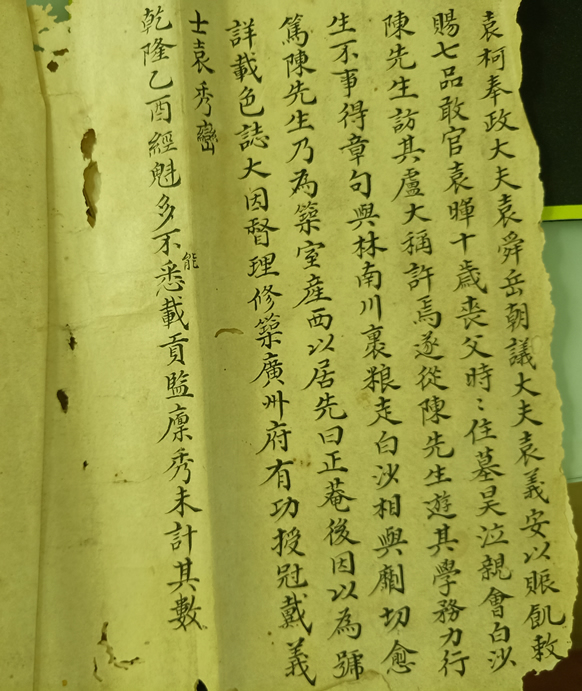 袁柯奉政大夫袁舜岳朝議大夫袁義安以賑飢敕
賜七品敢官袁暉十歲喪父時〻住墓昊泣親會白沙
陳先生訪其盧大稱許焉遂從陳先生遊其學務力行
生不事得章句與林南川裹粮走白沙相與劘切愈
篤陳先生乃為築室産西以居先曰正菴後因以為號
詳載色誌大因督理修築廣州府有功授冠戴義
士袁秀巒
乾隆乙酉經魁多不能悉載貢監廩秀未計其數